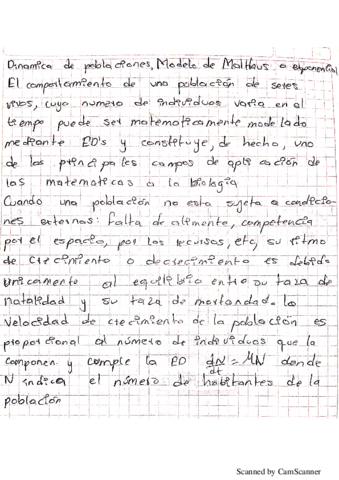 Dinamica de poblaciones, Modelo de Malthus o exponencial
El comportamiento de una población de seres
vivos, cuyo numero de individuos varia en el
tiempo puede ser matematicamente modelado
mediante ED's y constituye, de hecho, uno
de los principales campos de aplicación de
las matematicas a la biologia
Cuando una población no esta sujeta a condicio-
nes externas: falta de alimento, competencia
por el espacio, por los recursos, etc, su ritmo
de crecimiento o decrecimiento es debido
unicamente al equilibio entre su taza de
natalidad y su taza de mortandad. la
velocidad de crecimiento de la población es
proporcional al número de individuos que la
componen. y cumple la ED dN/dt = µN donde
N indica el número de habitantes de la
población
Scanned by CamScanner